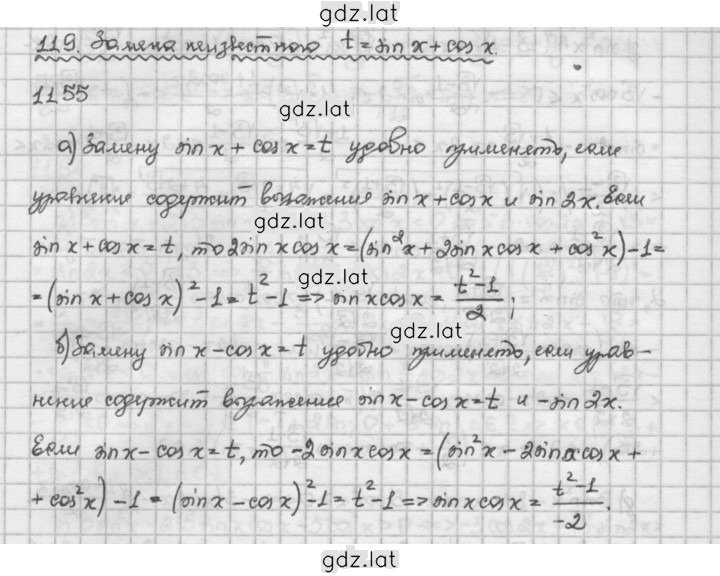 gdz.lat
119. Замена неизвестного t = sin x + cos x.
1155
gdz.lat
а) Замену sin x + cos x = t удобно применять, если
уравнение содержит выражения sin x + cos x и sin 2x. Если
gdz.lat
sin x + cos x = t, то 2 sin x cos x = (sin²x + 2 sin x cos x + cos²x) - 1 =
gdz.lat
= (sin x + cos x)² - 1 = t² - 1 => sin x cos x = (t² - 1)/2;
gdz.lat
б) Замену sin x - cos x = t удобно применять, если урав-
нение содержит выражение sin x - cos x = t и - sin 2x.
gdz.lat
Если sin x - cos x = t, то -2 sin x cos x = (sin²x - 2 sin x cos x +
+ cos²x) - 1 = (sin x - cos x)² - 1 = t² - 1 => sin x cos x = (t² - 1)/-2.
gdz.lat
gdz.lat